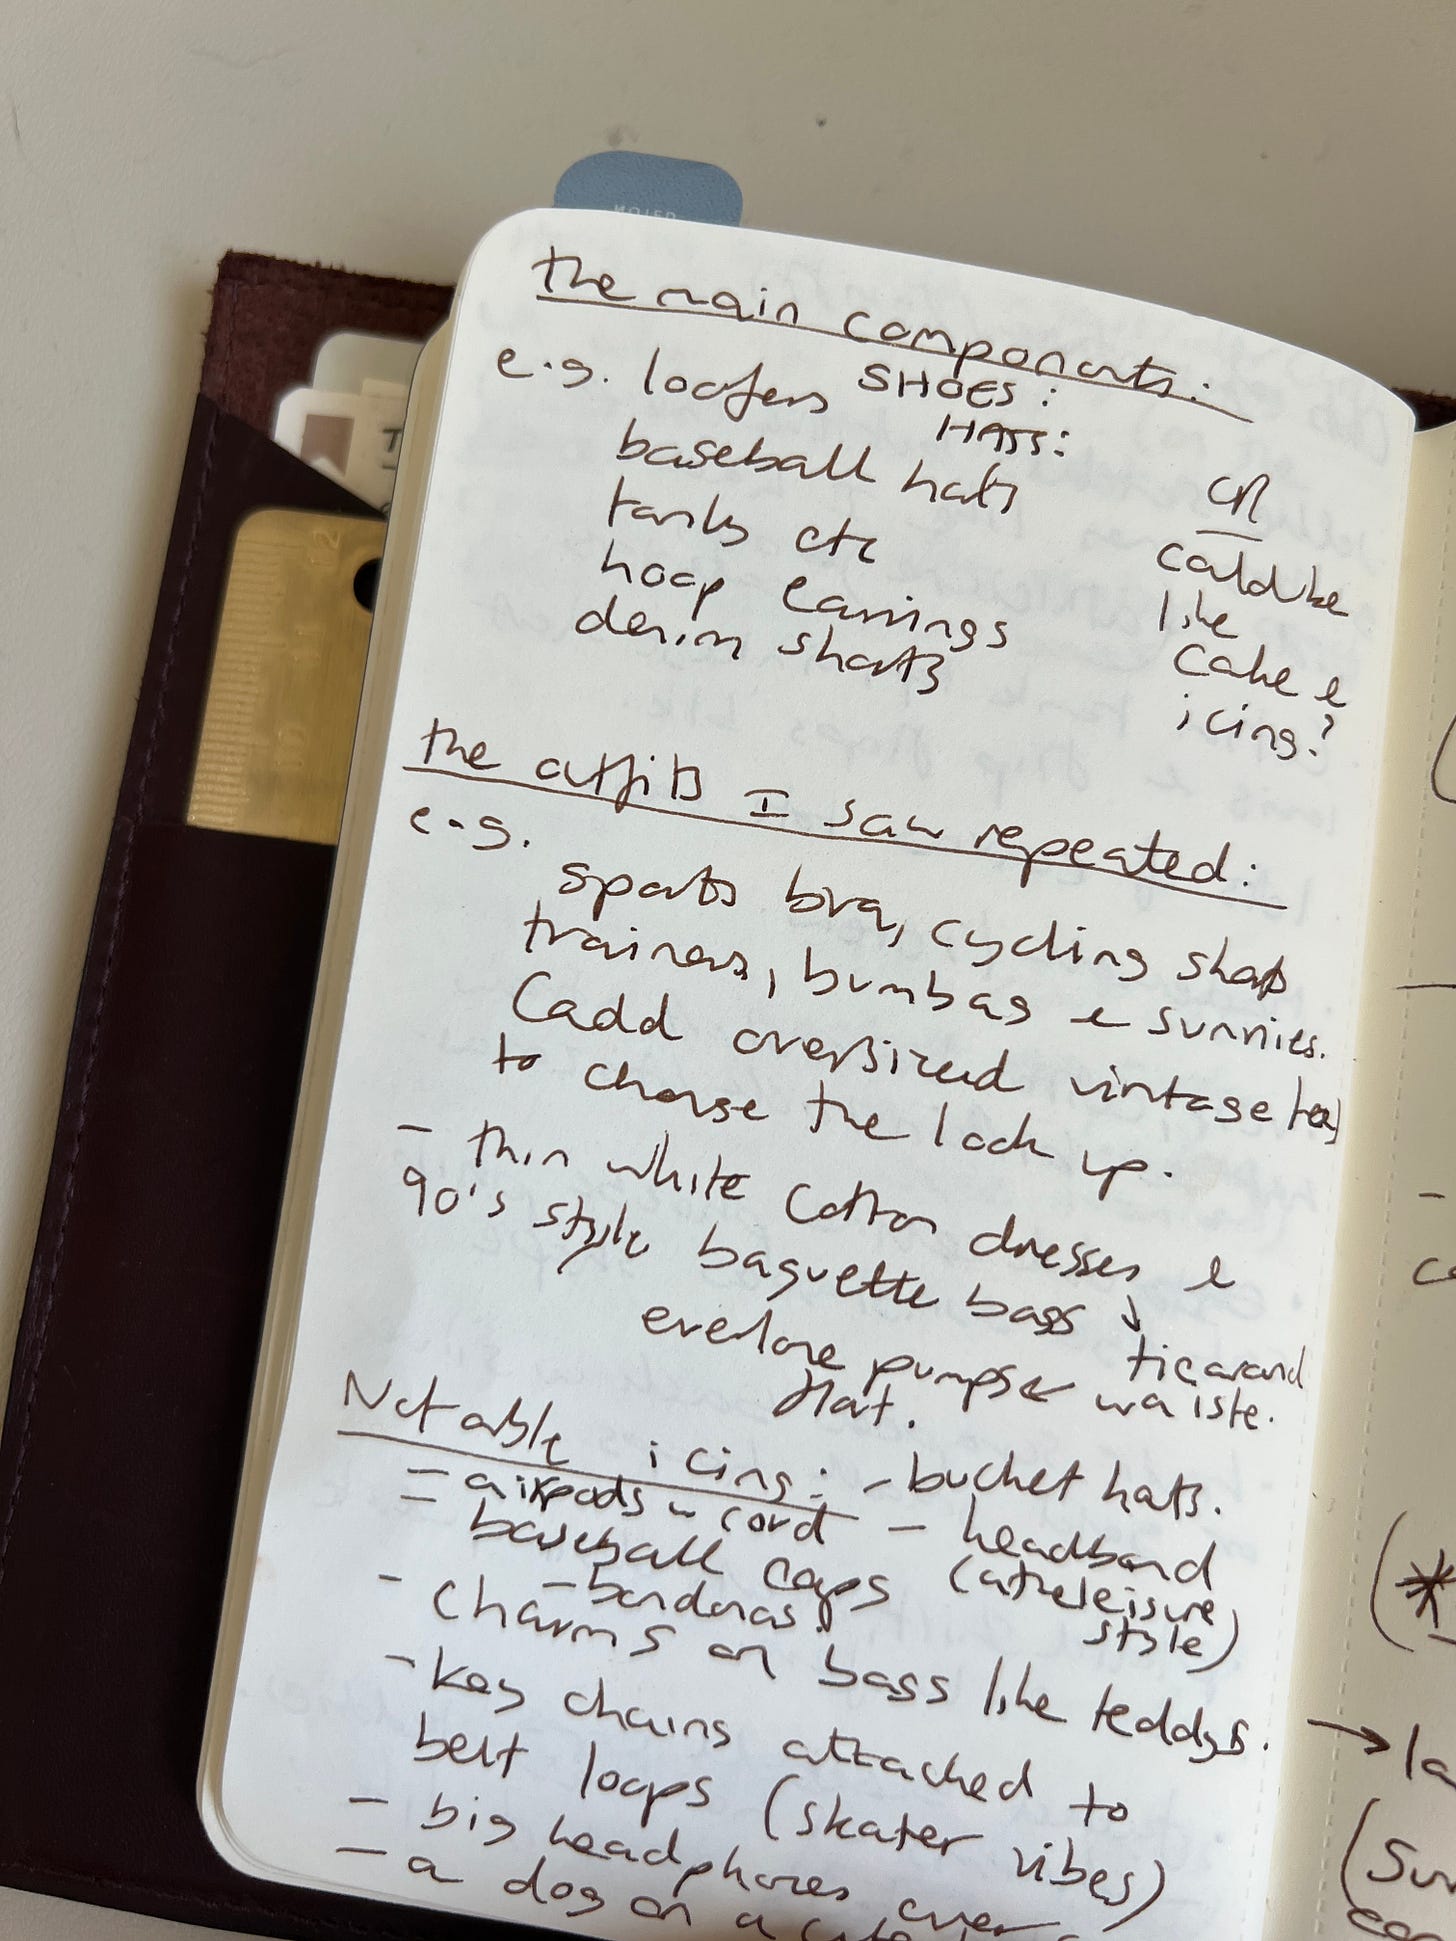 the main components:
e.g. loafers SHOES:
HATS:
baseball hats
tanks etc
hoop earrings
denim shorts
OR
could be
like
cake &
icing?
the outfits I saw repeated:
e.g.
sports bra, cycling shorts
trainers, bumbag & sunnies.
(add oversized vintage tee)
to change the look up.
- thin white cotton dresses &
90's style baguette bags
tie around
waiste.
everlane pumps
flat.
Notable icing: - bucket hats.
- airpods w cord - headband
- baseball caps (atheleisure
style)
- bandanas.
- charms on bags like teddys.
- key chains attached to
belt loops (skater vibes)
- big headphones over
- a dog on a